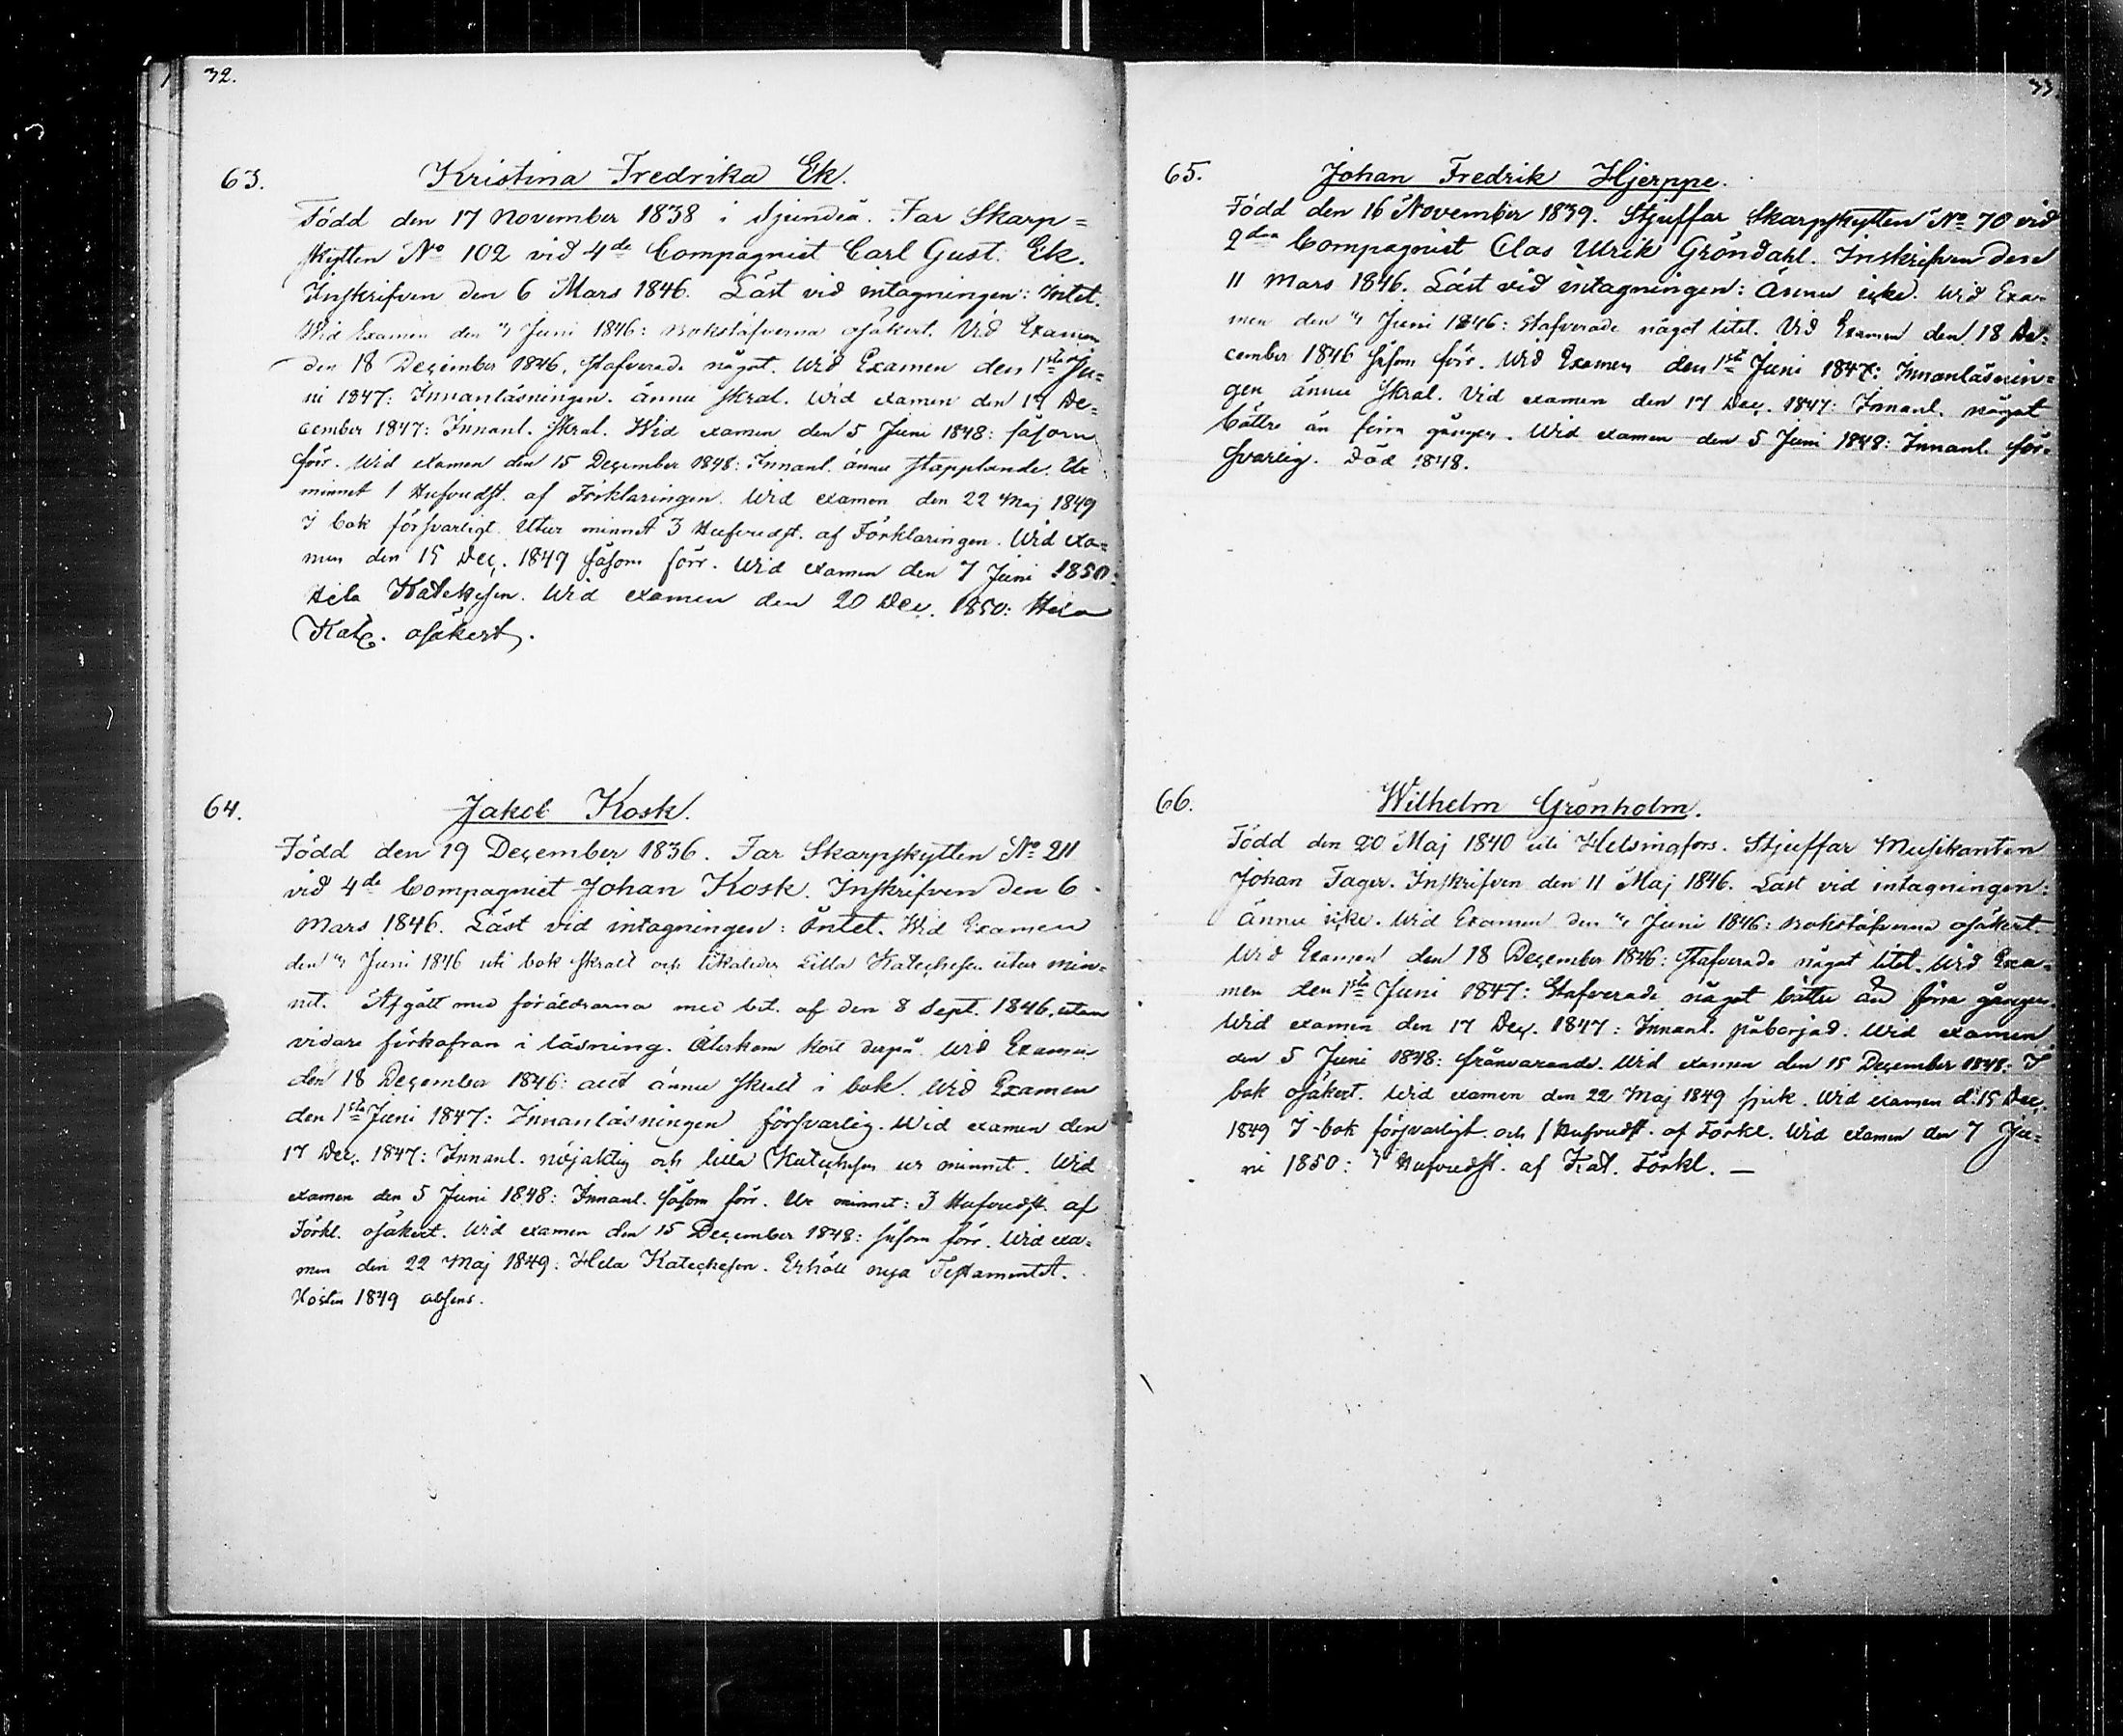 32.
63. Kristina Fredrika Ek.
Född den 17 November 1838 i Sjundeå. Far Skarp=
skytten No 102 vid 4de Compagniet Carl Gust. Ek.
Inskrifven den 6 Mars 1846. Läst vid intagningen: intet.
Wid Examen den " Juni 1846: Bokstäfverna osäkert. Vid Examen
den 18 December 1846, stafverade något. Wid Examen den 1sta Ju=
ni 1847: Innanläsningen ännu skral. Wid examen den 17 De=
cember 1847: Innanl. skral. Wid examen den 5 Juni 1848: såsom
förr. Wid examen den 15 December 1848: Innanl. ännu stapplande. Ur
minnet 1 Hufvudst. af Förklaringen. Wid examen den 22 Maj 1849
I bok försvarligt. Utur minnet 3 Hufvudst. af Förklaringen. Wid exa=
men den 15 Dec. 1849 såsom förr. Wid examen den 7 Juni 1850:
Hela Katekesen. Wid examen den 20 Dec. 1850: Hela
Kat. osäkert.
64. Jakob Kosk.
Född den 19 December 1836. Far Skarpskytten No 211
vid 4de Compagniet Johan Kosk. Inskrifven den 6
Mars 1846. Läst vid intagningen: intet. Wid Examen
den " Juni 1846 uti bok skralt och likaledes Lilla Katechesen utur min=
net. Afgått med föräldrarna med bet. af den 8 Sept. 1846, utan
vidare förkofran i läsning. Återkom kort derpå. Wid Examen
den 18 December 1846: allt ännu skralt i bok. Wid Examen
den 1sta Juni 1847: Innanläsningen försvarlig. Wid examen den
17 Dec. 1847: Innanl. nöjaktig och lilla Katechesen ur minnet. Wid
examen den 5 Juni 1848: Innanl. såsom förr. Ur minnet: 3 Hufvudst. af
Förkl. osäkert. Wid examen den 15 December 1848: såsom förr. Wid exa=
men den 22 Maj 1849: Hela Katechesen. Erhöll nya Testamentet.
Hösten 1849 absens.
33.
65. Johan Fredrik Hjerppe.
Född den 16 November 1839. Stjuffar Skarpskytten No 70 vid
2dra Compagniet Clas Ulrik Gröndahl. Inskrifven den
11 Mars 1846. Läst vid intagningen: ännu icke. Wid Exa=
men den " Juni 1846: stafverade något litet. Vid Examen den 18 De=
cember 1846 såsom förr. Wid Examen den 1sta Juni 1847: Innanläsnin=
gen ännu skral. Vid examen den 17 Dec. 1847: Innanl. något
bättre än förra gången. Wid examen den 5 Juni 1848: Innanl. för=
svarlig. Död 1848.
66. Wilhelm Grönholm.
Född den 20 Maj 1840 uti Helsingfors. Stjuffar Musikanten
Johan Fager. Inskrifven den 11 Maj 1846. Läst vid intagningen:
ännu icke. Wid Examen den " Juni 1846: Bokstäfverna osäkert.
Wid Examen den 18 December 1846: stafverade något litet. Wid Exa=
men den 1sta Juni 1847: Stafverade något bättre än förra gången.
Wid examen den 17 Dec. 1847: Innanl. påbörjad. Wid examen
den 5 Juni 1848: frånvarande. Wid examen den 15 December 1848: I
bok osäkert. Wid examen den 22 Maj 1849 sjuk. Wid examen d. 15 Dec.
1849 I bok försvarligt och 1 Hufvudst. af Förkl. Wid examen den 7 Ju=
ni 1850: 3 Hufvudst. af Kat. Förkl. —